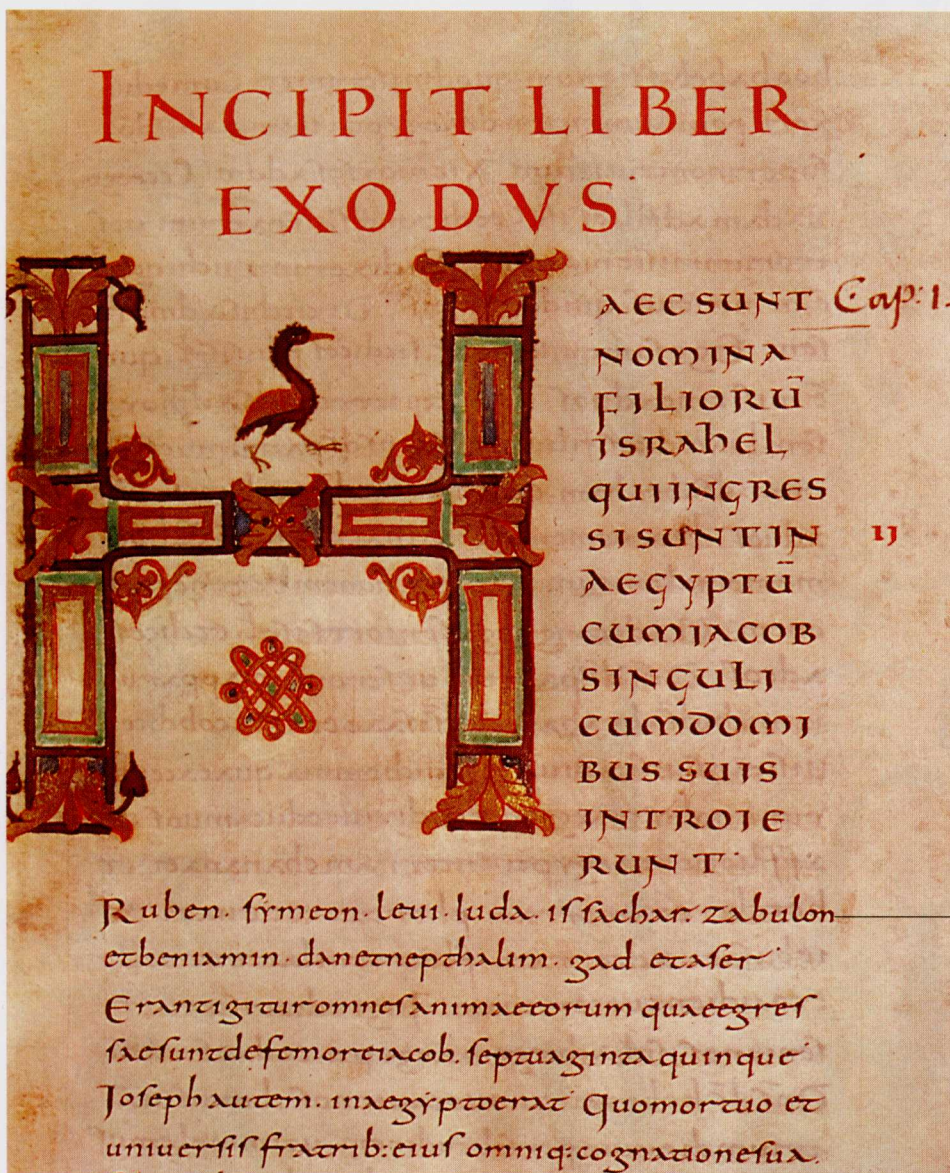 INCIPIT LIBER
EXODVS
HAEC SUNT Cap: 1.
NOMINA
FILIORŪ
ISRAhEL
QUIINGRES
SISUNTIN IJ
AEGYPTŪ
CUMIACOB
SINGULI
CUMDOMI
BUS SUIS
INTROIE
RUNT·
Ruben· symeon· leui· Iuda· issachar· zabulon
etbeniamin· danetnepthalim· gad etaser
Erantigituromnesanimaeeorum quaeegres
saesuntdefemoreiacob. septuagintaquinque
Ioseph autem· inaegyptoerat Quomortuo et
uniuersis fratrib:eius omniq:cognationesua.